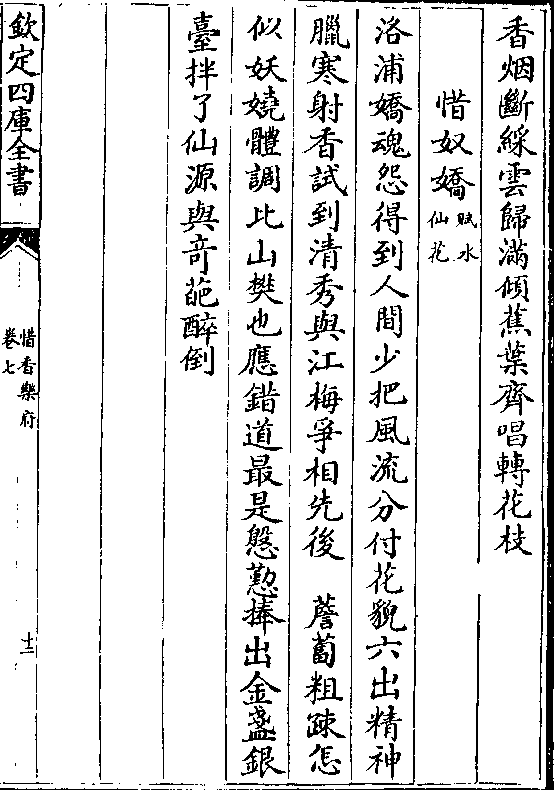 香烟斷綵雲歸滿傾蕉葉齊唱轉花枝
惜奴嬌賦水仙花
洛浦嬌魂怨得到人間少把風流分付花貌六出精神
臘寒射香試到清秀與江梅爭相先後　薝蔔粗疎怎
似妖嬈體調比山樊也應錯道最是慇懃捧出金盞銀
臺拌了仙源與竒葩醉倒
欽定四庫全書
惜香樂府
卷七
十二